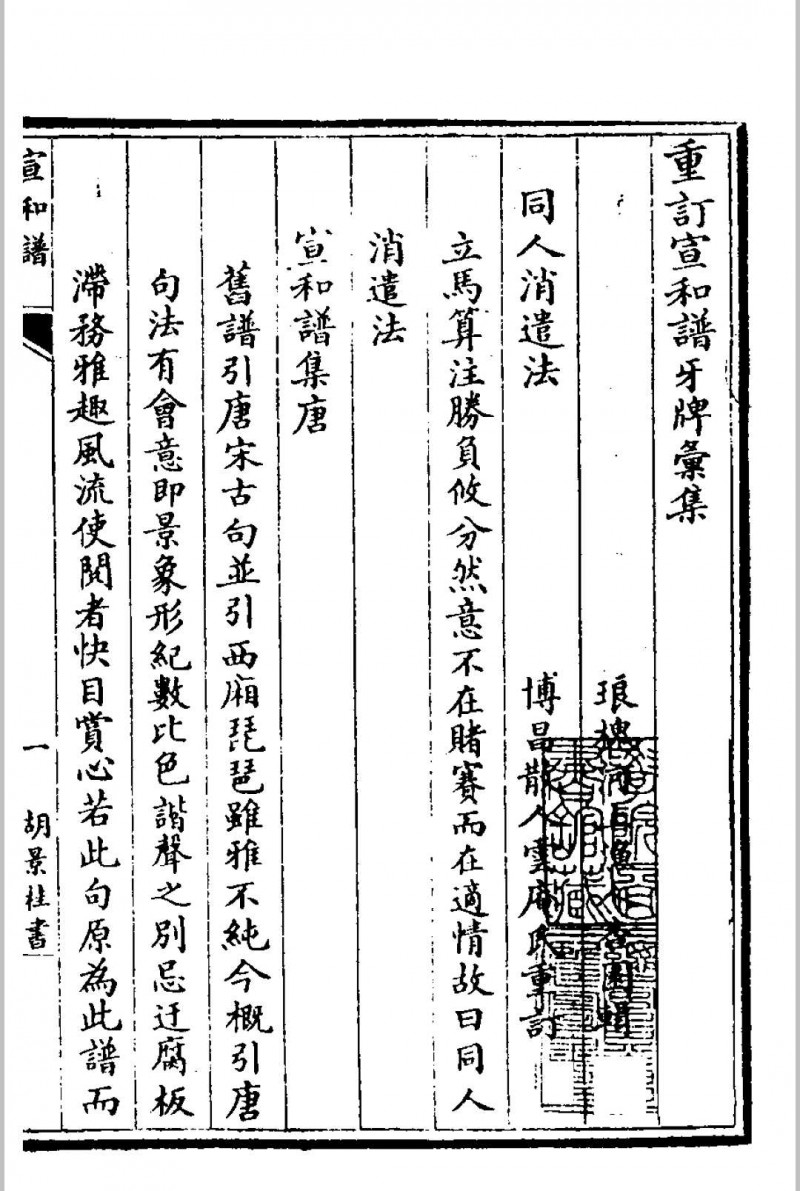 重訂宣和譜牙牌彙集
琅槐河上漁人杏園輯
同人消遣法　博昌散人雲庵氏重訂
立馬算注勝負攸分然意不在賭賽而在適情故曰同人
消遣法
宣和譜集唐
舊譜引唐宋古句並引西廂琵琶雖雅不純今概引唐
句法有會意即景象形紀數比色諧聲之別忌迂腐板
滯務雅趣風流使閱者快目賞心若此句原為此譜而
宣和譜　一　胡景桂書